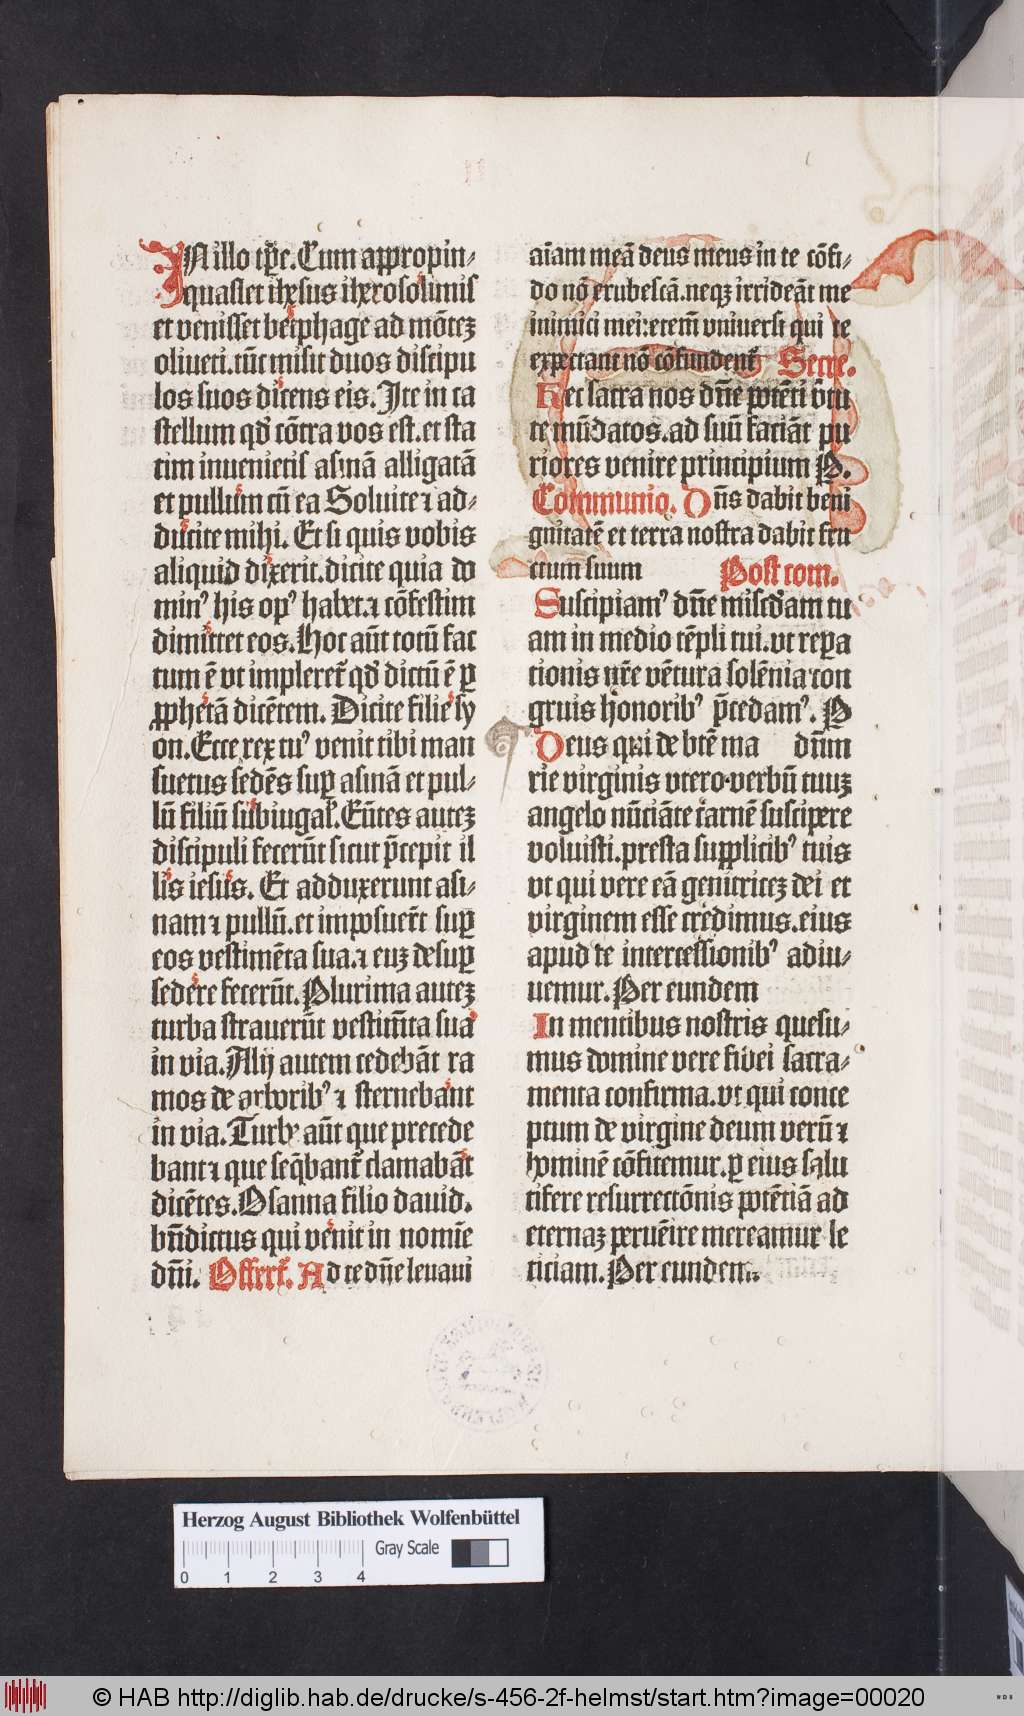 IN illo tp̄e. Cum appropin⸗
quasset ihesus iherosolimis
et venisset betphage ad mōtez
oliueti. tūc misit duos discipu
los suos dicens eis. Ite in ca
stellum qd̄ cōtra vos est. et sta
tim inuenietis asinā alligatā
et pullum cū ea Soluite ⁊ ad⸗
ducite mihi. Et si quis vobis
aliquid dixerit. dicite quia do
minꝰ his opꝰ habet. ⁊ cōfestim
dimittet eos. Hoc aūt totū fac
tum ē vt impleret᷑ qd̄ dictū ē ꝑ
ꝓphetā dicētem. Dicite filie sy
on. Ecce rex tuꝰ venit tibi man
suetus sedēs suꝑ asinā et pul⸗
lū filiū subiugal᷑. Eūtes autez
discipuli fecerūt sicut p̄cepit il
lis iesus. Et adduxerunt asi⸗
nam ⁊ pullū. et imposuer̄t suꝑ
eos vestimēta sua. ⁊ euz desuꝑ
sedere fecerūt. Plurima autez
turba strauerūt vestimn̄ta sua
in via. Alij autem cedebāt ra
mos de arboribꝰ ⁊ sternebant
in via. Turbe aūt que precede
bant ⁊ que seq̄bant᷑ clamabāt
dicētes. Osanna filio dauid.
bn̄dictus qui venit in nomīe
dn̄i. Offert᷑. Ad te dn̄e leuaui
aīam meā deus meus in te cōfi⸗
do nō erubescā. neqz irrideāt me
inimici mei: etem̄ vniuersi qui te
expectant nō cōfundent᷑ Secre.
Hec sacra nos dn̄e potēti v̄tu
te mūdatos. ad suū faciāt pu
riores venire principium P.
Communio. Dn̄s dabit beni
gnitatē et terra nostra dabit fru
ctum suum Post com.
Suscipiamꝰ dn̄e mīscdam tu
am in medio tēpli tui. vt reꝑa
tionis nr̄e vētura solēnia con
gruis honoribꝰ p̄cedamꝰ. P
Deus qui de btē ma dn̄m
rie virginis vtero verbū tuuz
angelo nūciāte carnē suscipere
voluisti. presta supplicibꝰ tuis
vt qui vere eā genitricez dei et
virginem esse credimus. eius
apud te intercessionibꝰ adiu⸗
uemur. Per eundem
In mentibus nostris quesu⸗
mus domine vere fidei sacra⸗
menta confirma. vt qui conce
ptum de virgine deum verū ⁊
hominē cōfitemur. ꝑ eius salu
tifere resurrectōnis potētiā ad
eternaz peruēire mereamur le
ticiam. Per eundem.
Herzog August Bibliothek Wolfenbüttel
Gray Scale
0 1 2 3 4
© HAB http://diglib.hab.de/drucke/s-456-2f-helmst/start.htm?image=00020